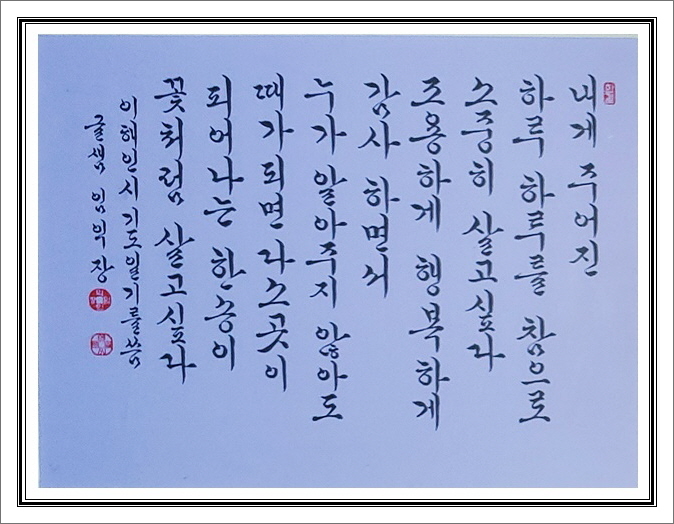 내게 주어진
하루 하루를 참으로
소중히 살고싶다
조용하게 행복하게
감사 하면서
누가 알아주지 않아도
때가되면 다소곳이
피어나는 한송이
꽃처럼 살고싶다
이해인시 기도일기를 씀
글샘 임익장